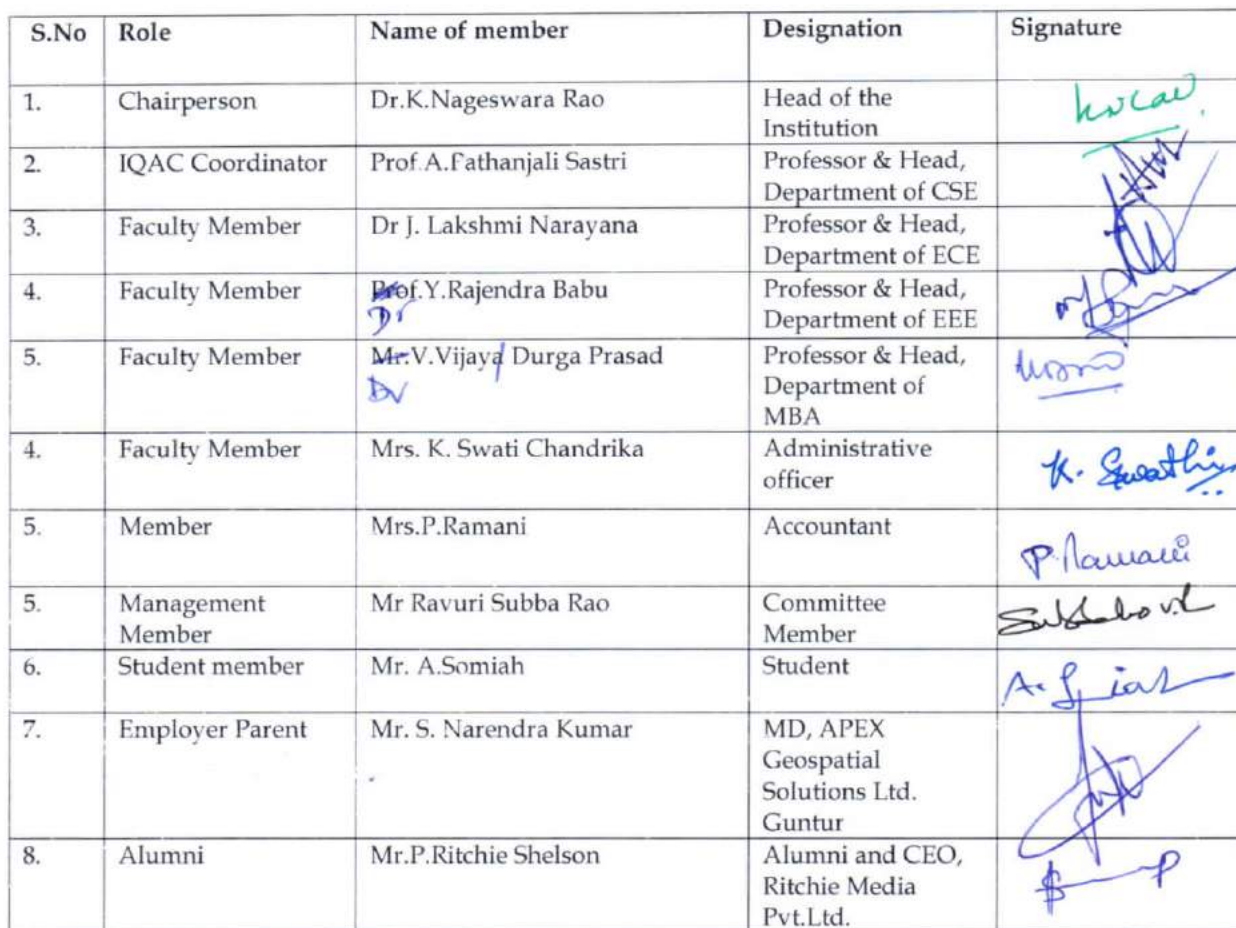 S.No Role Name of member Designation Signature
1. Chairperson Dr.K.Nageswara Rao Head of the
Institution
2. IQAC Coordinator Prof.A.Fathanjali Sastri Professor & Head,
Department of CSE
3. Faculty Member Dr J. Lakshmi Narayana Professor & Head,
Department of ECE
4. Faculty Member Prof.Y.Rajendra Babu Professor & Head,
Dr Department of EEE
5. Faculty Member Mr.V.Vijaya Durga Prasad Professor & Head,
Dr Department of
MBA
4. Faculty Member Mrs. K. Swati Chandrika Administrative
officer K. Swathi
5. Member Mrs.P.Ramani Accountant
P. Ramani
5. Management Mr Ravuri Subba Rao Committee
Member Member
6. Student member Mr. A.Somiah Student
7. Employer Parent Mr. S. Narendra Kumar MD, APEX
Geospatial
Solutions Ltd.
Guntur
8. Alumni Mr.P.Ritchie Shelson Alumni and CEO,
Ritchie Media
Pvt.Ltd.